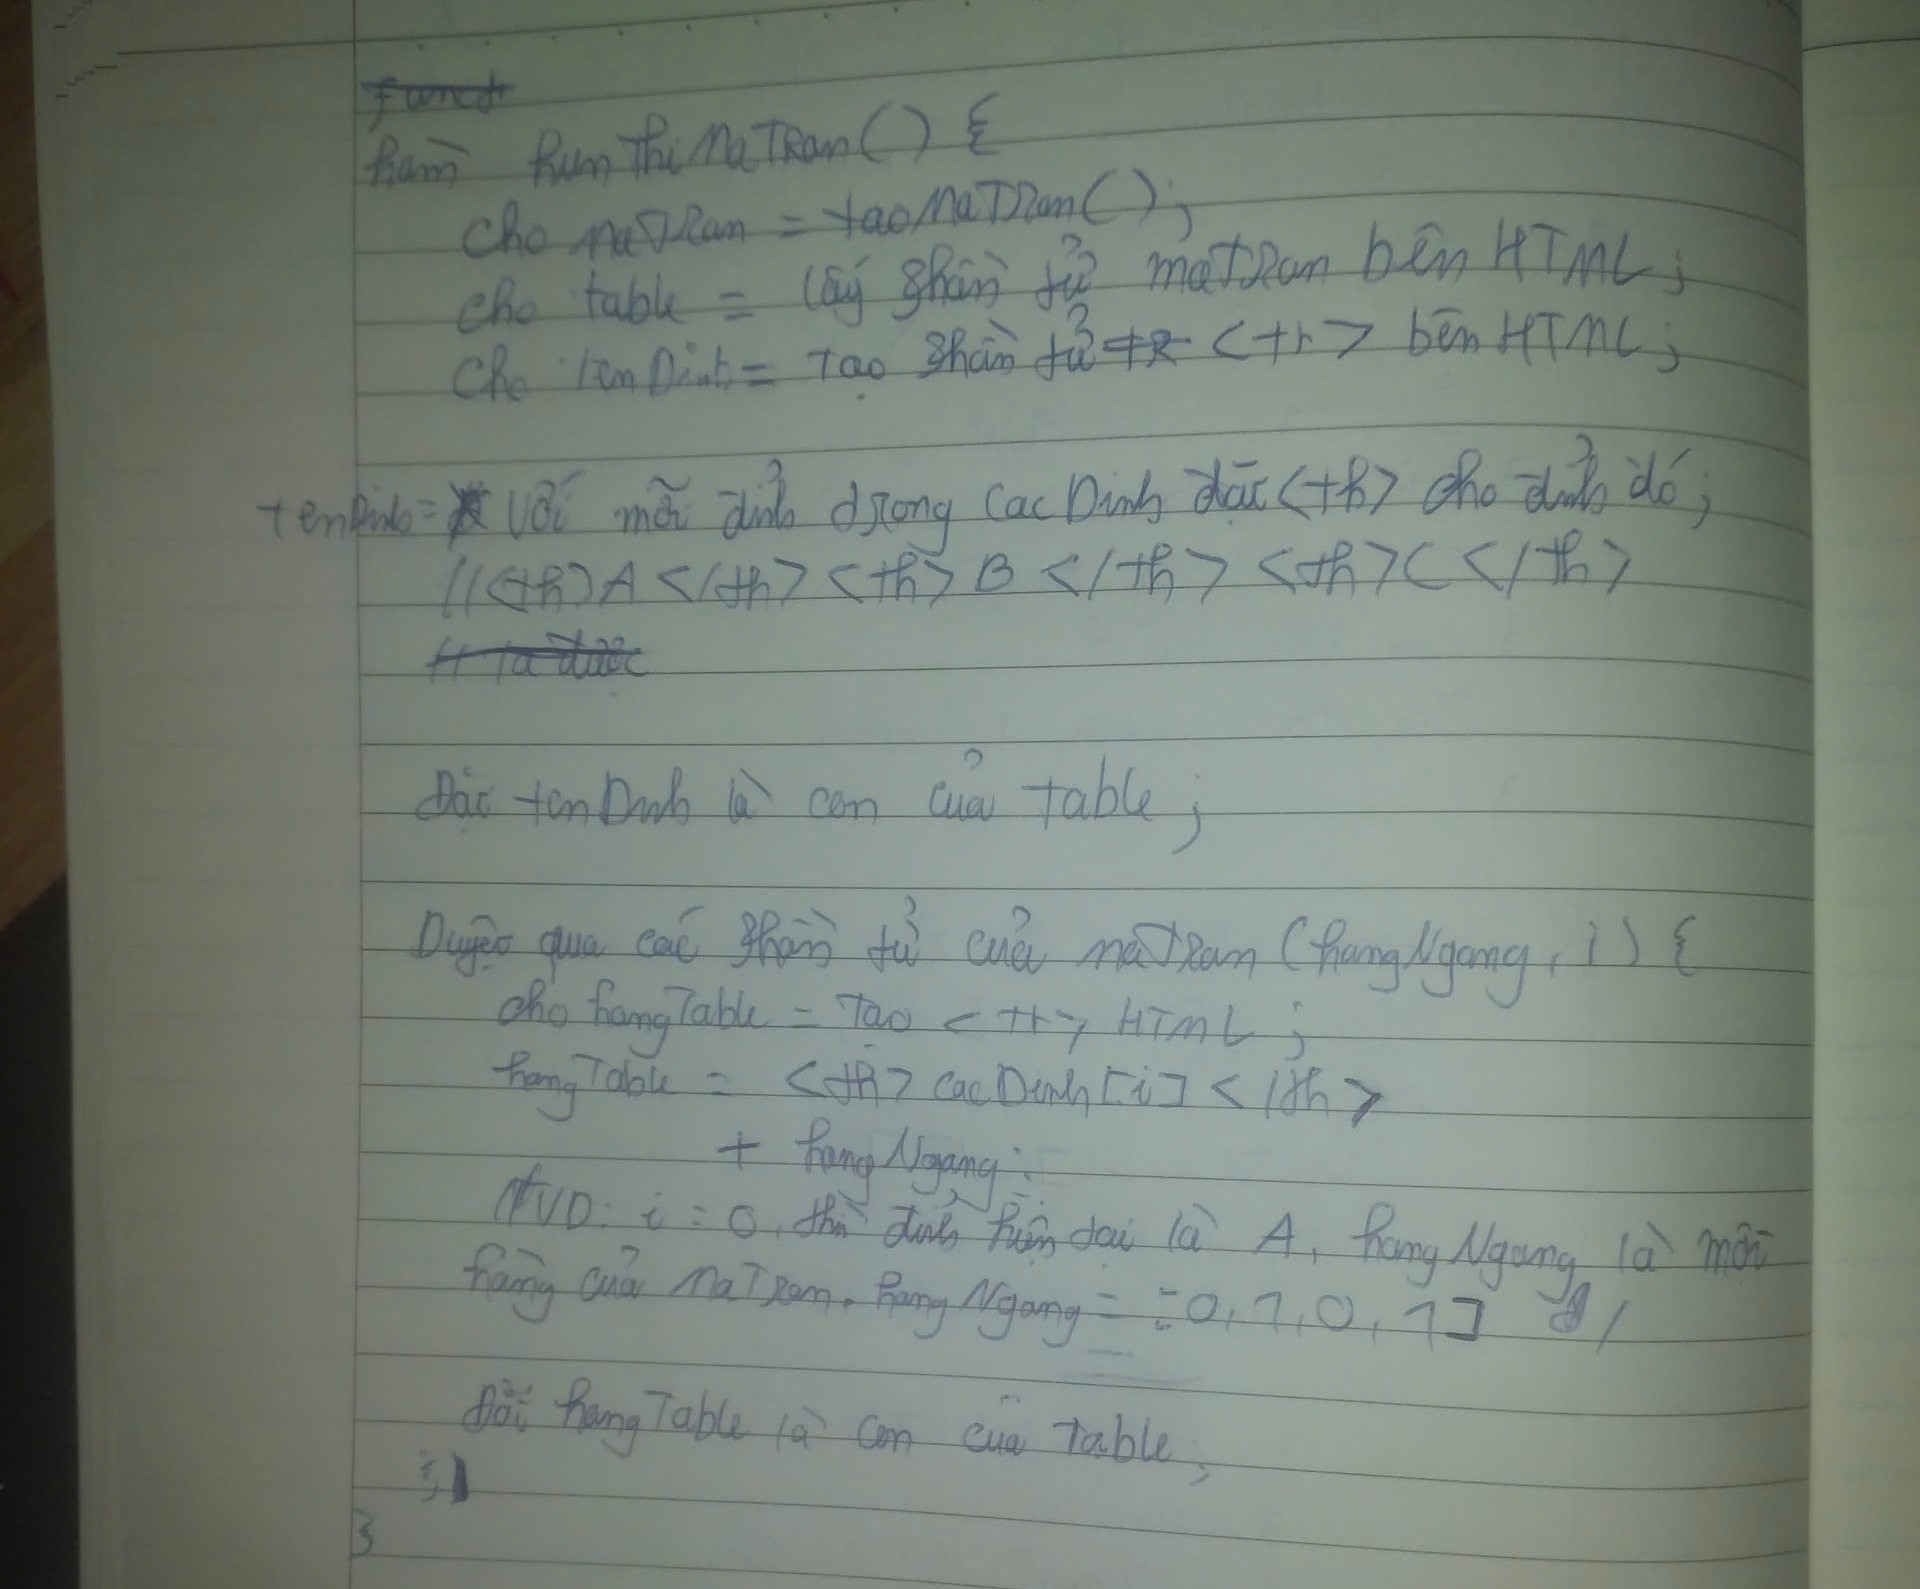 hàm hunThiMaTran() {
cho maTran = taoMaTran();
cho table = lấy phần tử maTran bên HTML;
cho tenDinh = Tạo phần tử <tr> bên HTML;
tenDinh = Với mỗi đỉnh trong cacDinh đặt <th> cho đỉnh đó;
//<th>A</th><th>B</th><th>C</th>
Đặt tenDinh là con của table;
Duyệt qua các phần tử của maTran (hangNgang, i) {
cho hangTable = Tạo <tr> HTML;
hangTable = <th> cacDinh[i] </th>
+ hangNgang;
/*VD: i = 0, thì đỉnh hiện tại là A, hangNgang là mỗi
hàng của MaTran. hangNgang = [0,1,0,1] */
Đặt hangTable là con của Table;
}
}